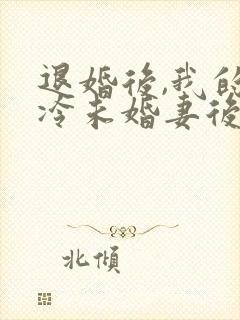 退婚後,我的
冷未婚妻後
北傾